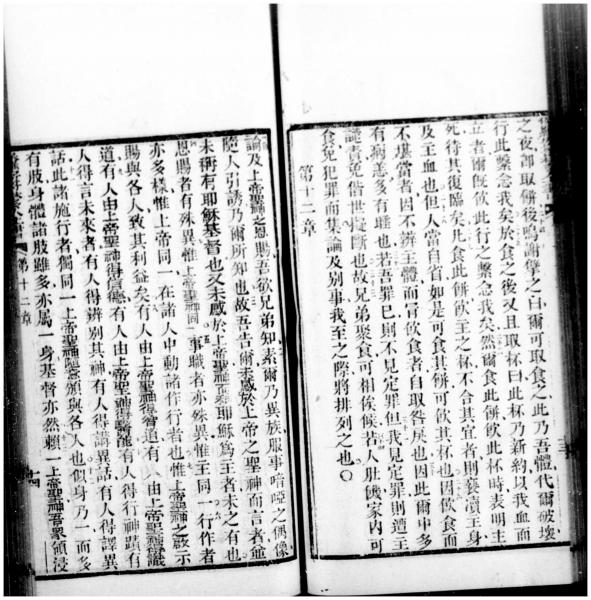 之夜卽取餅後嗚謝擘之曰爾可取食之此乃吾體代爾破壞
行此繫念我矣於食之後又且取杯曰此杯乃新約以我血而
立者爾旣飲此行之繫念我矣然爾食此餅飲此杯時表明主
死待其復臨矣凡食此餅飲主之杯不合其宜者則褻瀆主身
及主血也但人當自省如是可食其餅可飲其杯也因飲食而
不堪當者因不辨主體而冒飲食者自取咎戾也因此爾中多
有病恙多有睡也若吾罪己則不見定罪但我見定罪則遭主
譴責免偕世擬斷也故兄弟聚食可相俟候若人肚饑家內可
食免犯罪而集論及別事我至之際將排列之也〇
第十二章
論及上帝聖神之恩賜吾欲兄弟知素爾乃異族服事喑啞之偶像
隨人引誘乃爾所知也故吾告爾未感於上帝之聖神而言者並
未稱有耶穌基督也又未感於上帝聖神而奉耶穌爲主者未之有也
恩賜者有殊異惟上帝聖神同一事職者亦殊異惟主同一行作者
亦多樣惟上帝同一在諸人中動諸作行者也惟上帝聖神之啟示
賜與各人致其利益矣有人由上帝聖神得智道有人由上帝聖神得識
道有人由上帝聖神得信德有人由上帝聖神得醫能有人得行神蹟有
人得言未來者有人得辨別其神有人得講異話有人得譯異
話此諸施行者獨同一上帝聖神隨意頒與各人也似身乃一而多
有肢身體諸肢雖多亦屬一身基督亦然賴一上帝聖神吾眾領浸
第十二章
十四